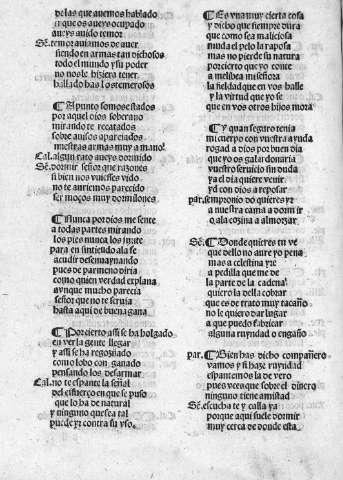 delas que auemos hablado
si que os aueys ocupado
aueys auido temor
Sē. temor auiamos de auer
siendo en armas tan dichosos
todo el mundo y su poder
no nos le hiziera tener
hallado has los temerosos
¶ A punto somos estados
por aquel dios soberano
mirando te recatados
sobre auisos aparejados
nuestras armas muy a mano
Cal. algun rato aueys dormido
Sē. dormir señor que razones
si bien nos vuiesses vido
no te auriemos parecido
ser moços muy dormilones
¶ Nunca por dios me sente
a todas partes mirando
los pies nunca los junte
para en sintiendo ala fe
acudir desenuaynando
pues de parmeno diria
como quien verdad explana
aun que mucho parecia
señor que no te seruia
hasta aqui de buena gana
¶ Por cierto assi se ha holgado
en ver la gente llegar
y assi se ha regozijado
como lobo con ganado
pensando los desarmar
Cal. no te espante la señal
del esfuerço en que se puso
que lo ha de natural
y ninguno que sea tal
puede yr contra su vso.
¶ Es vna muy cierta cosa
y dicho que siempre dura
que como sea maliciosa
muda el pelo la raposa
mas no pierde su natura
por cierto que yo conte
a melibea mi señora
la fieldad que en vos halle
y la virtud que yo se
que en vos otros hijos mora
¶ Y quan seguro tenia
mi cuerpo con vuestra ayuda
rogad a dios por buen dia
que yo os galardonaria
vuestro seruicio sin duda
ya el dia quiere venir
yd con dios a reposar
par. sempronio do quieres yr
a nuestra cama a dormir
o ala cozina a almorzar
Sē. ¶ Donde quieres tu ve
que dello no aure yo pena
mas a celestina yre
a pedilla que me de
la parte de la cadena
quiero la della cobrar
que es de trato muy tacaño
no le quiero dar lugar
a que puedo fabricar
alguna ruyndad o engaño
par. ¶ Bien has dicho compañero
vamos y si haze ruyndad
espantemosla de vero
pues vees que sobre el dinero
ninguno tiene amistad
Sē. escucha te y calla ya
porque aqui suele dormir
muy cerca de donde esta